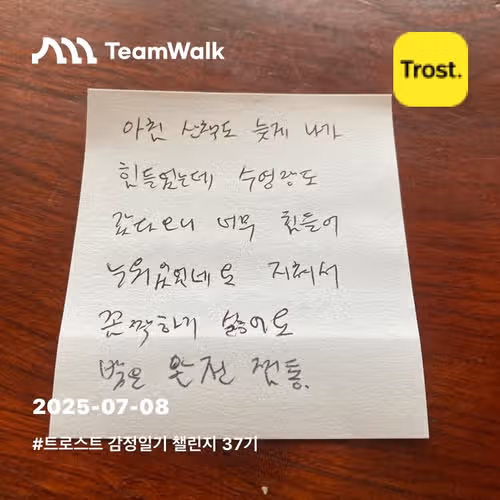 TeamWalk
Trost.
아침 산책도 늦게 나가
힘들었는데 수영장도
갔다오니 너무 힘들어
누워있었네요 지쳐서
꼼짝하기 싫어요
밖은 완전 찜통.
2025-07-08
#트로스트 감정일기 챌린지 37기